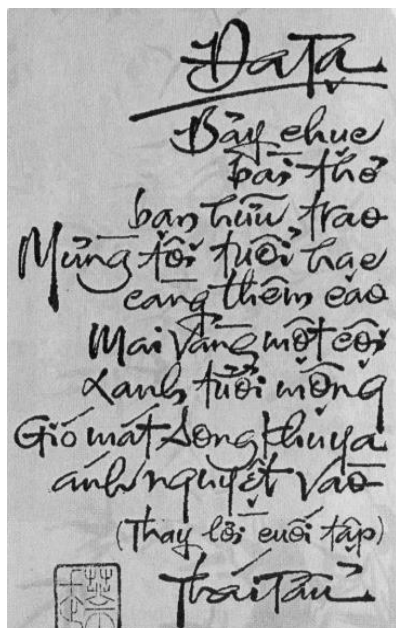 Đa Tạ
Bảy chục
bài thơ
bạn hữu trao
Mừng tôi tuổi hạc
càng thêm cao
Mai vàng một cội
xanh tuổi mộng
Gió mát song khuya
ánh nguyệt vào
(Thay lời cuối tập)
Thái Tẩu